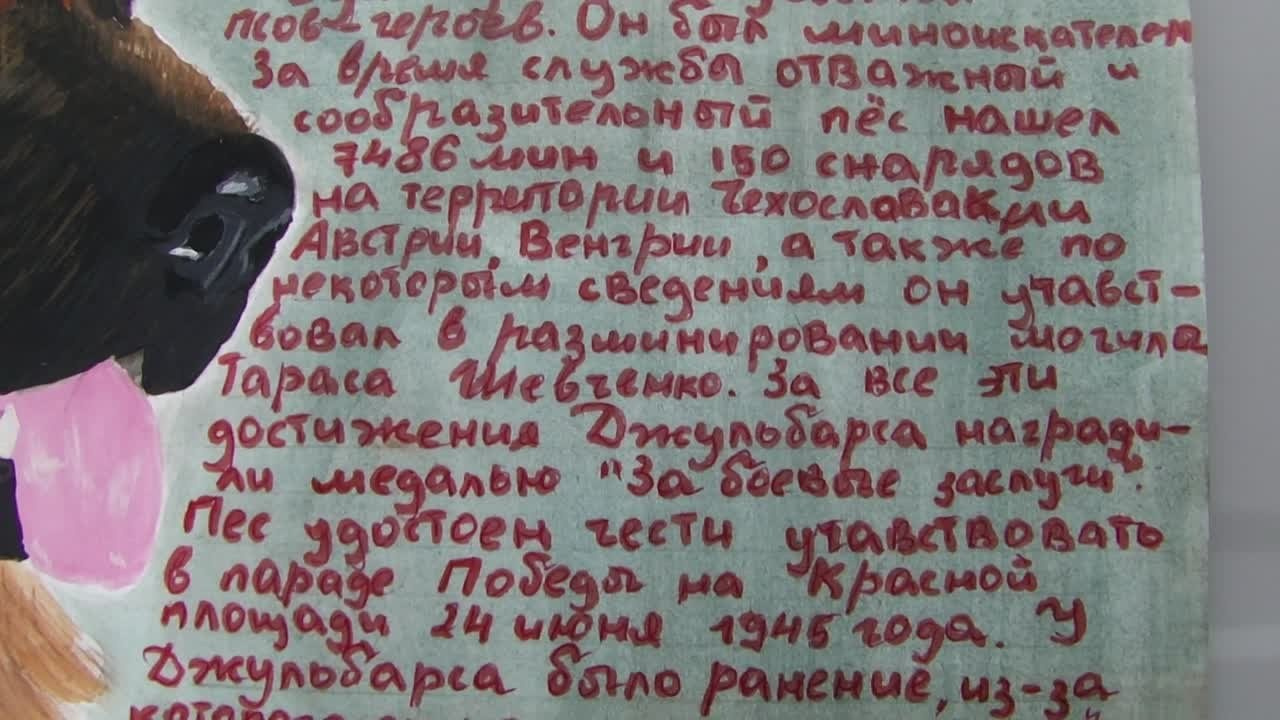 псов героев. Он был миноискателем
За время службы отважный и
сообразительный пёс нашел
7486 мин и 150 снарядов
на территории Чехославакии
Австрии, Венгрии, а также по
некоторым сведениям он учавст-
вовал в разминировании могила
Тараса Шевченко. За все эти
достижения Джульбарса награди-
ли медалью "За боевые заслуги".
Пес удостоен чести учавствовать
в параде Победы на Красной
площади 24 июня 1945 года. У
Джульбарса было ранение, из-за